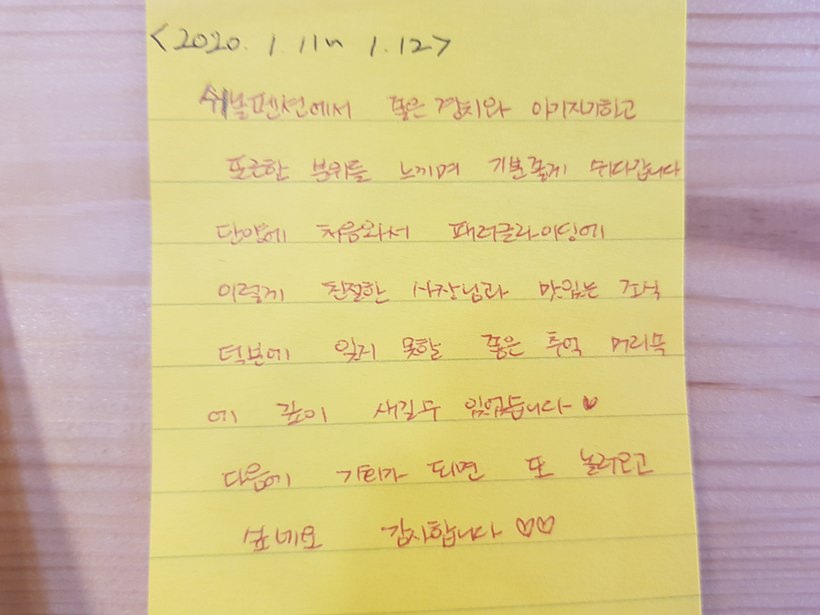 <2020. 1. 11~ 1. 12>
쉬놀펜션에서 좋은 경치와 아기자기하고
포근한 분위를 느끼며 기분좋게 쉬다갑니다
단양에 처음와서 패러글라이딩에
이렇게 친절한 사장님과 맛있는 조식
덕분에 잊지 못할 좋은 추억 머리속
에 깊이 새길수 있었습니다 ♥
다음에 기회가 되면 또 놀러오고
싶네요 감사합니다 ♡♡